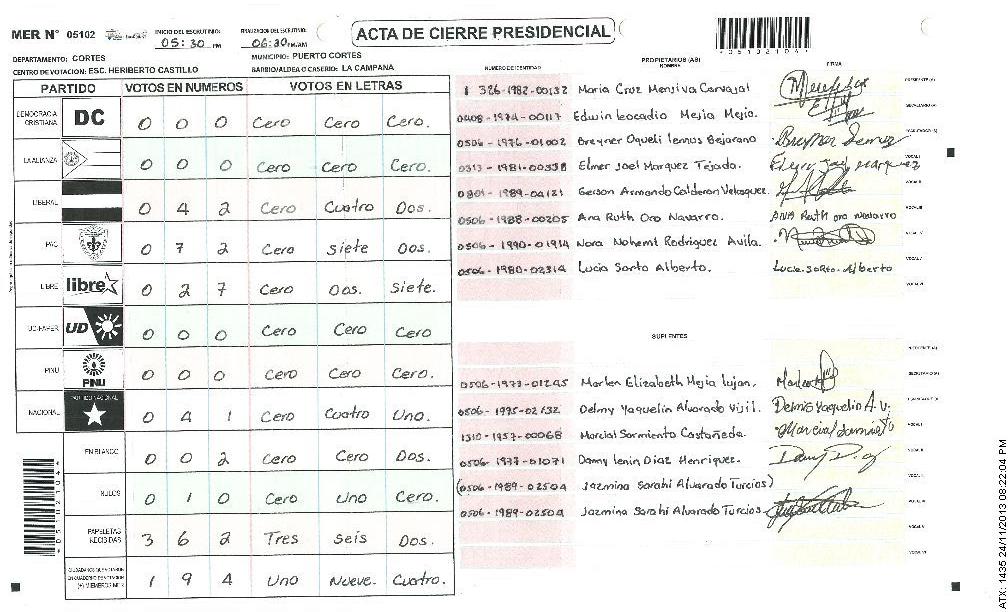 MER N° 05102 INICIO DEL ESCRUTINIO: 05:30 PM FINALIZACION DEL ESCRUTINIO: 06:30 PM/AM
ACTA DE CIERRE PRESIDENCIAL
*05102104*
DEPARTAMENTO: CORTES MUNICIPIO: PUERTO CORTES
CENTRO DE VOTACION: ESC. HERIBERTO CASTILLO BARRIO/ALDEA O CASERIO: LA CAMPANA
PARTIDO VOTOS EN NUMEROS VOTOS EN LETRAS
DEMOCRACIA CRISTIANA DC 0 0 0 Cero Cero Cero.
LA ALIANZA 0 0 0 Cero Cero Cero.
LIBERAL 0 4 2 Cero Cuatro Dos.
PAC 0 7 2 Cero siete Dos.
LIBRE libre 0 2 7 Cero Dos. Siete.
UD-FAPER UD 0 0 0 Cero Cero Cero
PINU PINU 0 0 0 Cero Cero Cero.
NACIONAL PARTIDO NACIONAL 0 4 1 Cero Cuatro Uno.
EN BLANCO 0 0 2 Cero Cero Dos.
NULOS 0 1 0 Cero Uno Cero.
PAPELETAS RECIBIDAS 3 6 2 Tres seis Dos.
CIUDADANOS QUE VOTARON EN CUADERNO DE VOTACION (+) MIEMBROS MER 1 9 4 Uno Nueve. Cuatro.
NUMERO DE IDENTIDAD PROPIETARIOS (AS) NOMBRE FIRMA
1326-1982-00132 Maria Cruz Menjiva Carvajal PRESIDENTE (A)
0408-1974-00117 Edwin leocadio Mejia Mejia. SECRETARIO (A)
0506-1976-01002 Breyner Oqueli lemus Bejarano Breyner Lemuz ESCRUTADOR (A)
0313-1981-00338 Elmer Joel Marquez Tejada. Elmer Joel Marquez VOCAL I
0801-1989-04121 Gerson Armando Calderon Velasquez. VOCAL II
0506-1988-00205 Ana Ruth Oro Navarro. ANA Ruth oro navarro VOCAL III
0506-1990-01914 Nora Nohemt Rodriguez Avila. VOCAL IV
0506-1980-02314 Lucia Sorto Alberto. Lucia Sorto Alberto VOCAL V
VOCAL VI
SUPLENTES
PRESIDENTE (A)
0506-1977-01245 Marlen Elizabeth Mejia lujan. SECRETARIO (A)
0506-1995-02632 Delmy Yaquelin Alvarado Vijil. Delmis Yaquelin A.V. ESCRUTADOR (A)
1310-1957-00068 Marcial Sarmiento Castañeda. Marcial Sarmiento VOCAL I
0506-1977-01071 Danny lenin Diaz Henriquez. VOCAL II
(0506-1989-02504 Jazmina Sarahi Alvarado Turcios) VOCAL III
0506-1989-02504 Jazmina Sarahi Alvarado Turcios. VOCAL IV
VOCAL V
VOCAL VI
*05102104*
ATX: 1435 24/11/2013 08:22:04 PM